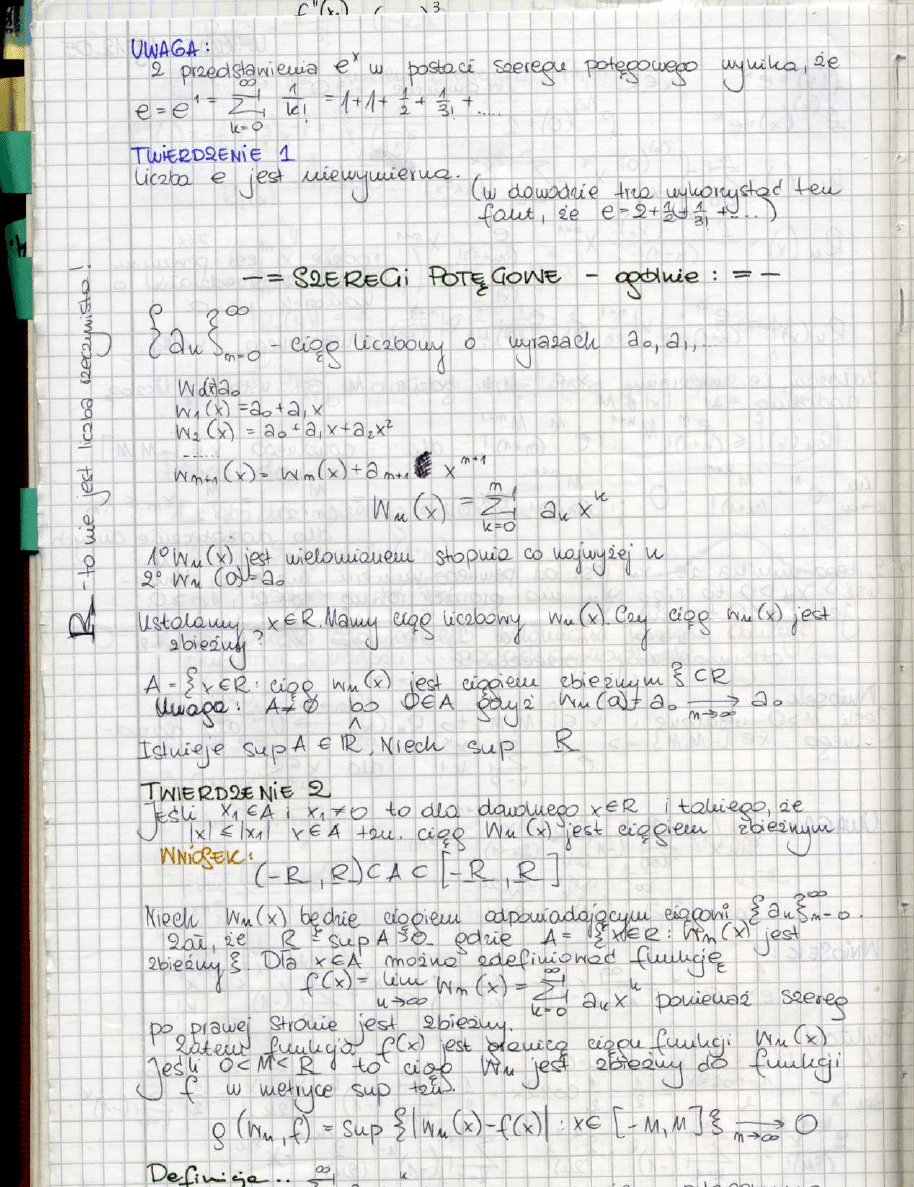 UWAGA:
2 przedstawienia e^x w postaci szeregu potęgowego wynika, że
e = e^1 = ∞∑k=0 1/k! = 1+1+ 1/2 + 1/3! + .....
TWIERDZENIE 1
liczba e jest niewymierna.
(w dowodzie trza wykorzystać ten
fakt, że e = 2+1/2+1/3! + ... )
-= SZEREGI POTĘGOWE - ogólnie : = -
{an}∞n=0 - ciąg liczbowy o wyrazach a0, a1, ..
W0(x)=a0
W1(x) = a0+a1x
W2(x) = a0+a1x+a2x²
......
Wn+1(x) = Wn(x)+an+1 x^n+1
Wn(x) = n∑k=0 ak x^k
1° Wn(x) jest wielomianem stopnia co najwyżej n
2° Wn(0)=a0
Ustalamy x∈R. Mamy ciąg liczbowy Wn(x). Czy ciąg Wn(x) jest
zbieżny?
A = {x∈R : ciąg Wn(x) jest ciągiem zbieżnym} ⊂R
Uwaga: A≠∅ bo 0∈A gdyż Wn(0)=a0 →n→∞ a0
Istnieje sup A ∈ R̂, Niech sup R
TWIERDZENIE 2
Jeśli x1∈A i x1≠0 to dla dowolnego x∈R i takiego, że
|x| ≤ |x1| x∈A tzn. ciąg Wn(x) jest ciągiem zbieżnym
WNIOSEK:
(-R, R)⊂A⊂[-R, R]
Niech Wn(x) będzie ciągiem odpowiadającym ciągowi {an}∞n=0.
Zał, że R = sup A > 0 gdzie A = {x∈R : Wn(x) jest
zbieżny} Dla x∈A można zdefiniować funkcję
f(x) = lim n→∞ Wn(x) = ∞∑k=0 akx^k ponieważ szereg
po prawej stronie jest zbieżny.
Zatem funkcja f(x) jest granicą ciągu funkcji Wn(x)
Jeśli 0<M<R to ciąg Wn jest zbieżny do funkcji
f w metryce sup tzn.
ρ(Wn, f) = sup {|Wn(x)-f(x)| : x∈ [-M, M]} →n→∞ 0
Definicja..
R - to nie jest liczba rzeczywista!